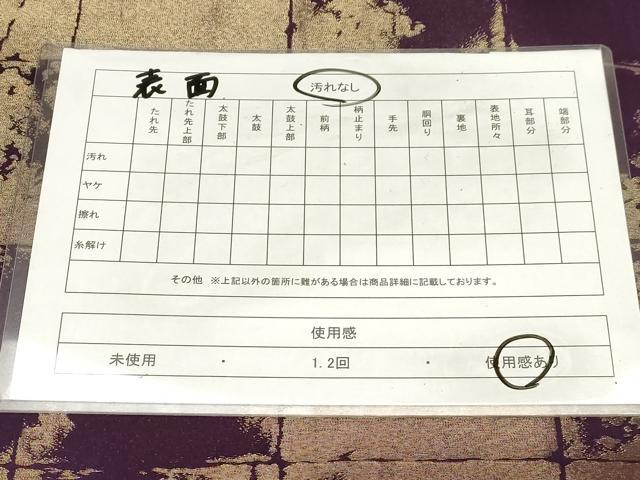 表面 汚れなし
たれ先 たれ先上部 太鼓下部 太鼓 太鼓上部 前柄 柄止まり 手先 胴回り 裏地 表地所々 耳部分 端部分
汚れ
ヤケ
擦れ
糸解け
その他 ※上記以外の箇所に難がある場合は商品詳細に記載しております。
使用感
未使用 ・ 1.2回 ・ 使用感あり